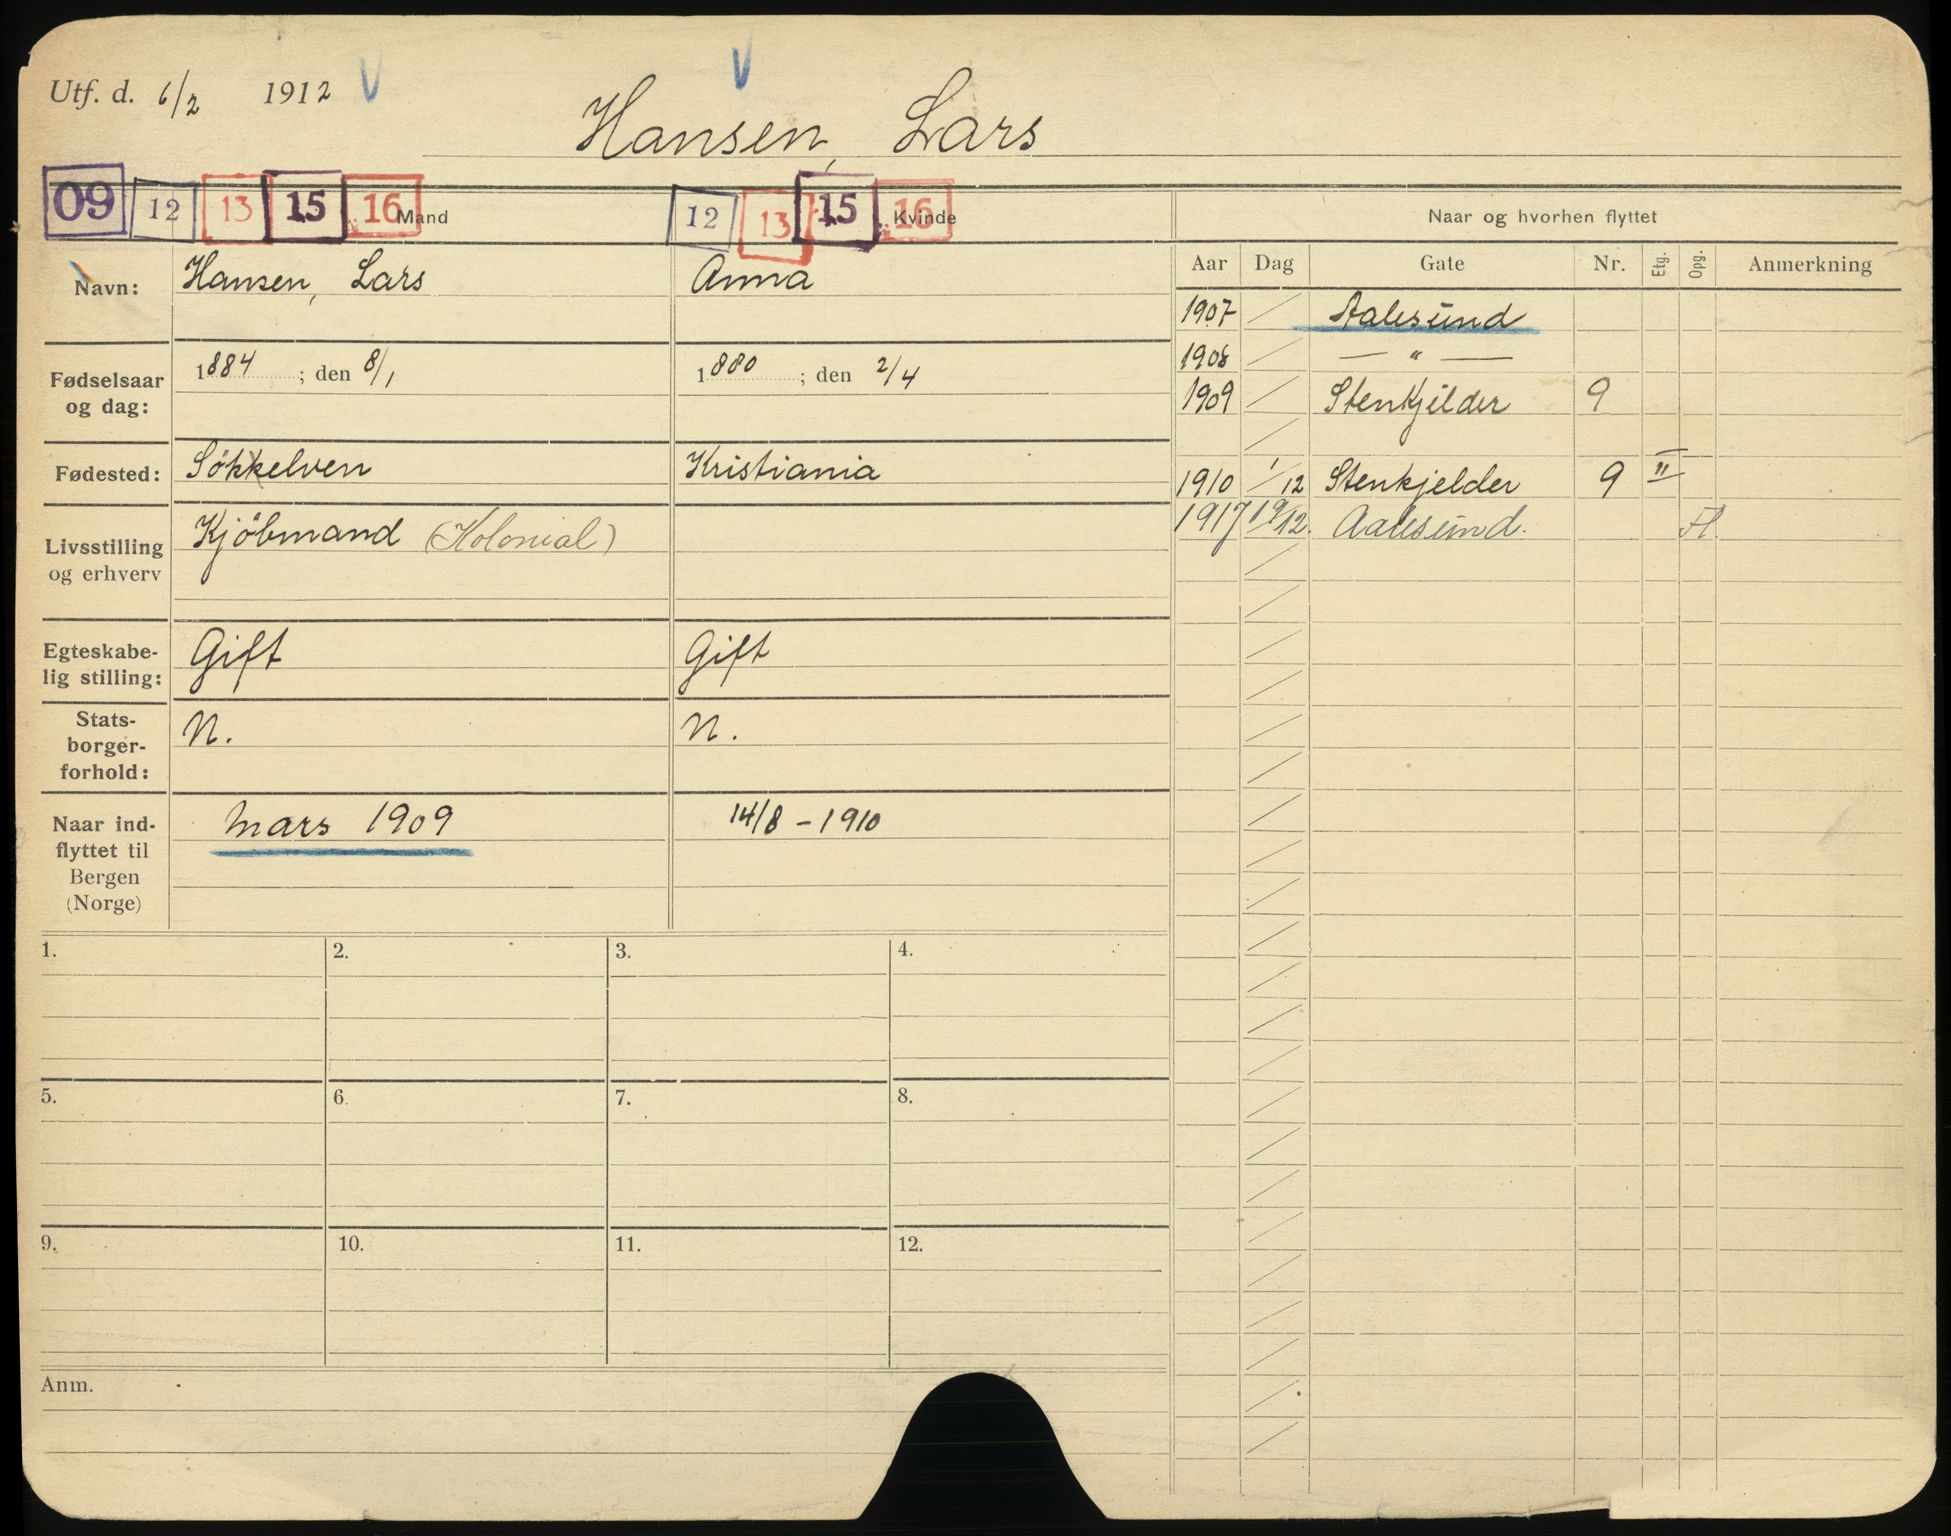 Utf. d. 6/2 1912 V V
Hansen, Lars
09 12 13 15 16 Mand 12 13 15 16 Kvinde
Navn: Hansen, Lars Anna
Fødselsaar og dag: 1884 ; den 8/1 1880 ; den 2/4
Fødested: Sökkelven Kristiania
Livsstilling og erhverv Kjöbmand (Kolonial)
Egteskabe-
lig stilling: Gift Gift
Stats-
borger-
forhold: N. N.
Naar ind-
flyttet til
Bergen
(Norge) Mars 1909 14/8 - 1910
1. 2. 3. 4.
5. 6. 7. 8.
9. 10. 11. 12.
Anm.
Naar og hvorhen flyttet
Aar Dag Gate Nr. Etg. Opg. Anmerkning
1907 / Aalesund
1908 / — " —
1909 / Stenkjelder 9
1910 1/12 Stenkjelder 9 II
1917 19/12. Aalesund. Fl.